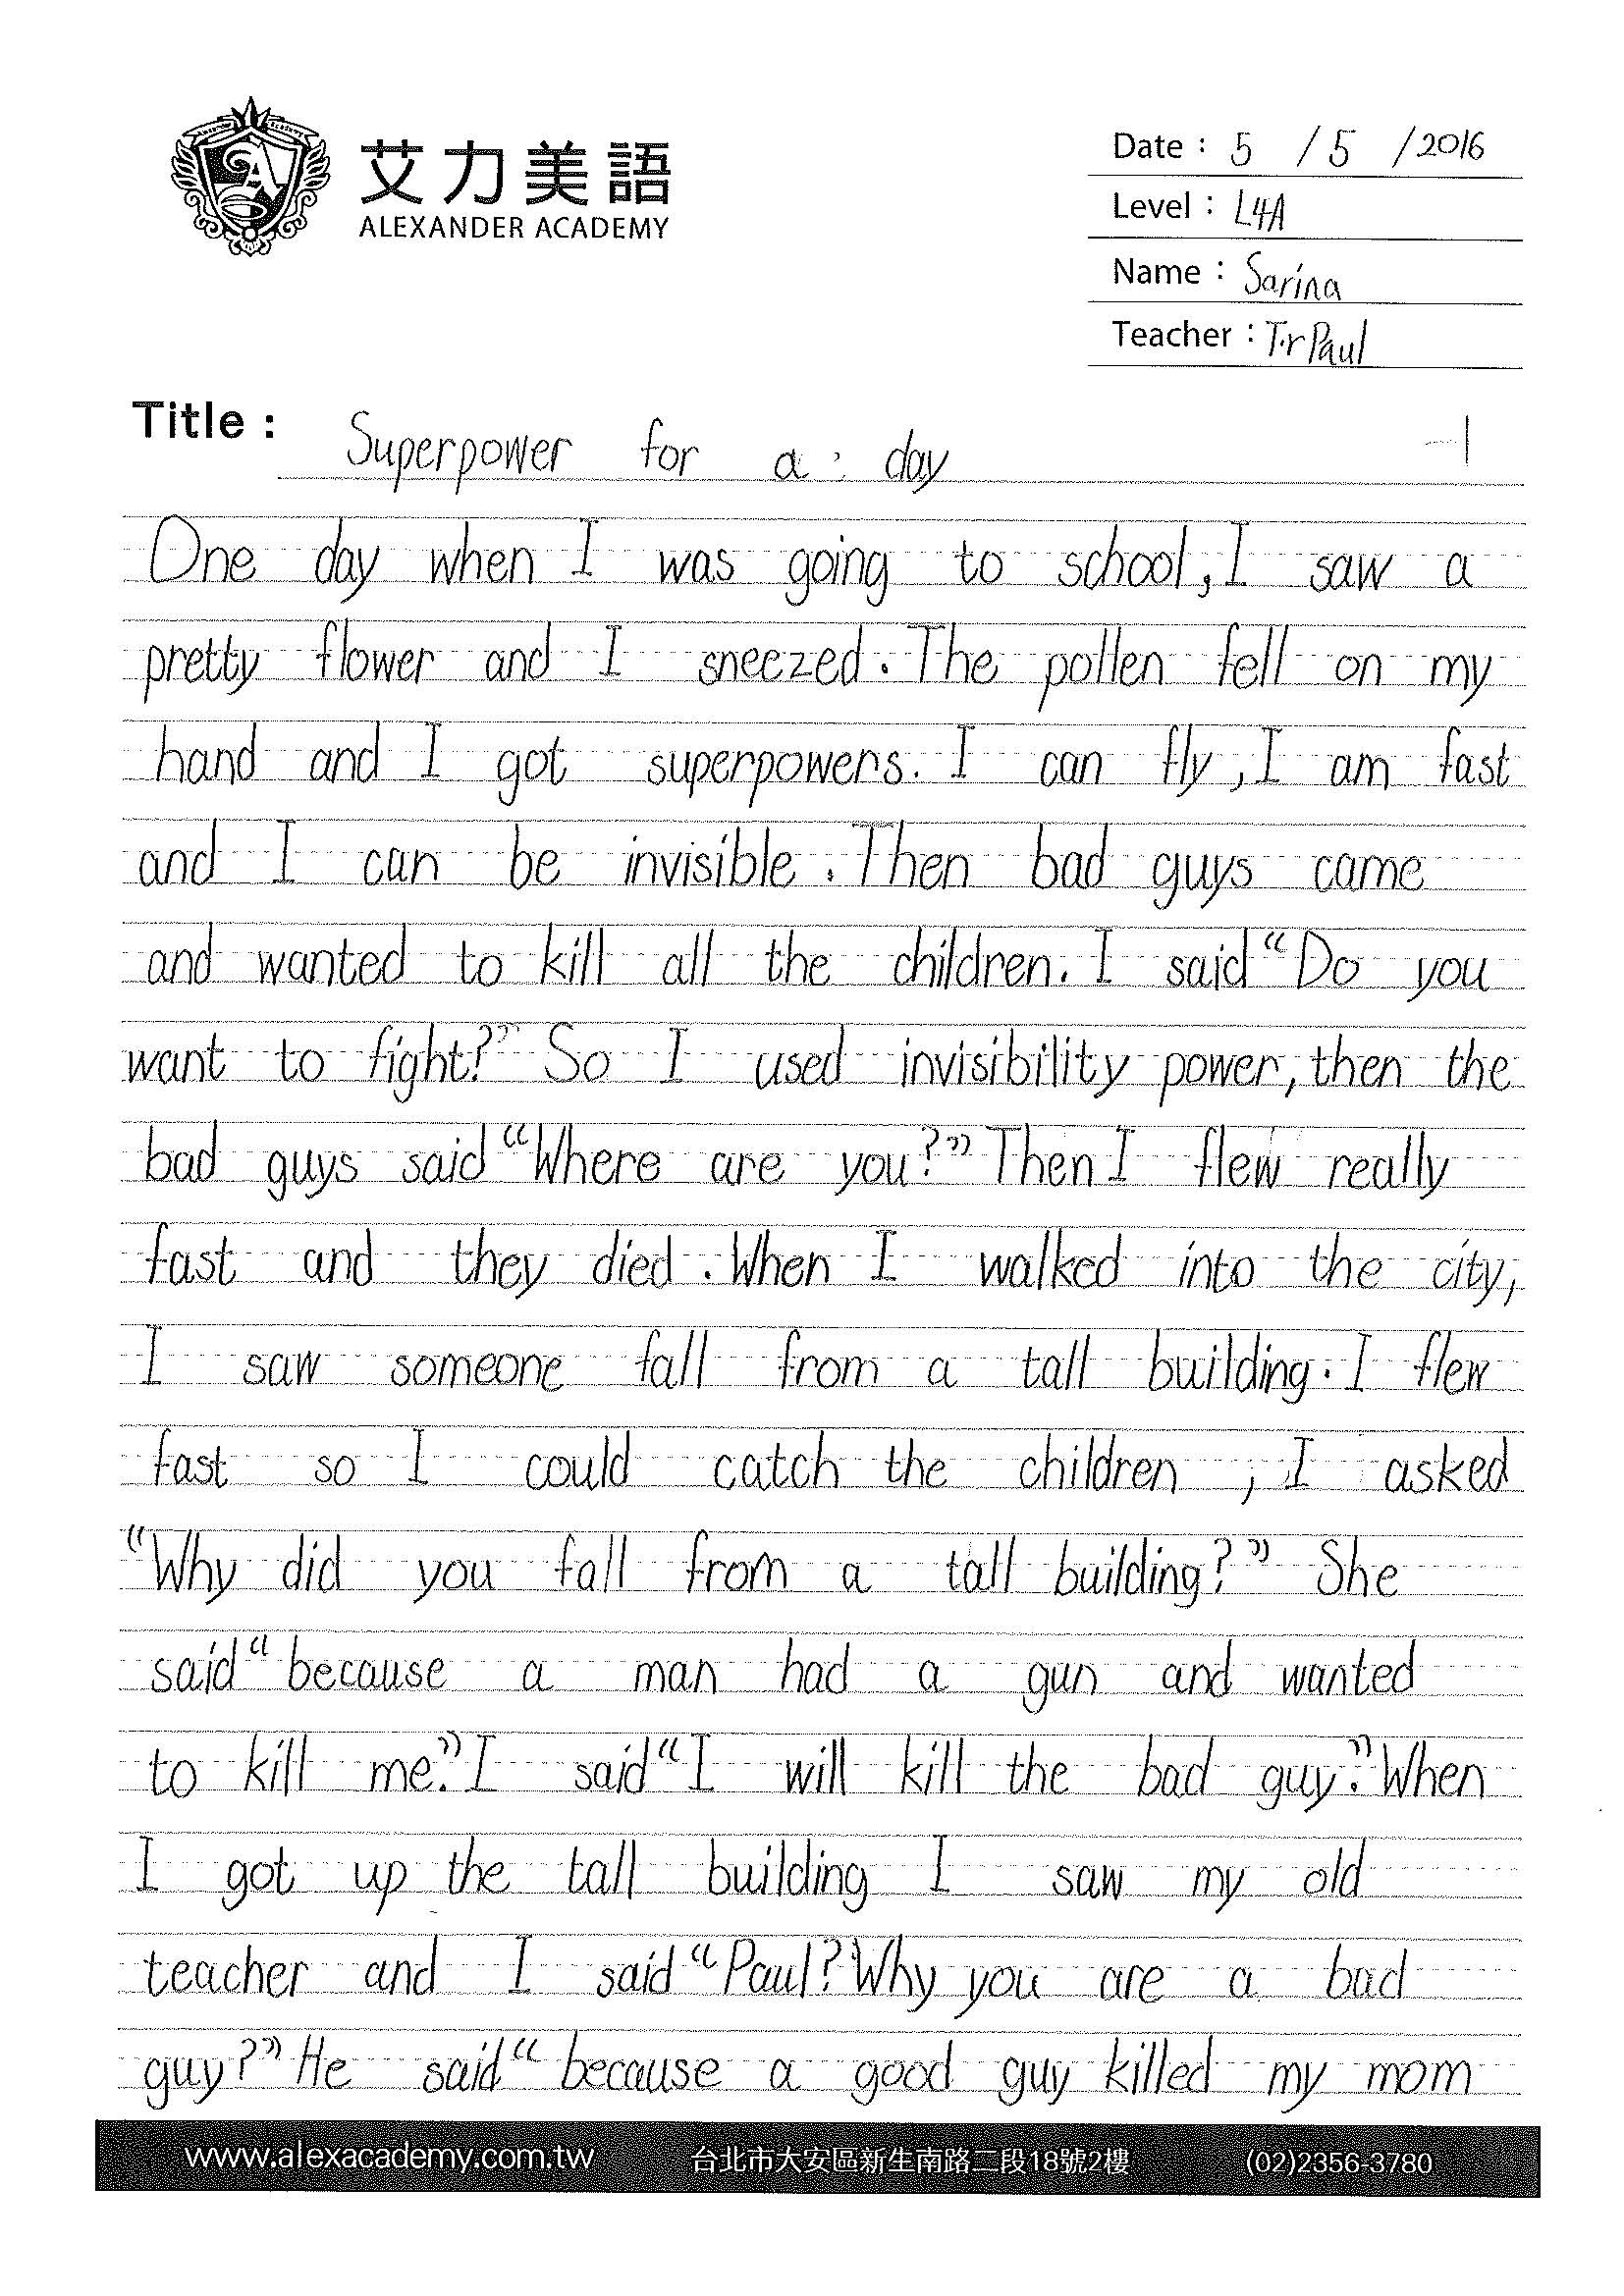 艾力美語
ALEXANDER ACADEMY
Date : 5 / 5 / 2016
Level : L4A
Name : Sarina
Teacher : T.r Paul
Title : Superpower for a day -1
One day when I was going to school, I saw a
pretty flower and I sneezed. The pollen fell on my
hand and I got superpowers. I can fly, I am fast
and I can be invisible. Then bad guys came
and wanted to kill all the children. I said “Do you
want to fight?” So I used invisibility power, then the
bad guys said “Where are you?” Then I flew really
fast and they died. When I walked into the city,
I saw someone fall from a tall building. I flew
fast so I could catch the children , I asked
“Why did you fall from a tall building?” She
said “because a man had a gun and wanted
to kill me.” I said “I will kill the bad guy.” When
I got up the tall building I saw my old
teacher and I said “Paul? Why you are a bad
guy?” He said “because a good guy killed my mom
www.alexacademy.com.tw 台北市大安區新生南路二段18號2樓 (02)2356-3780